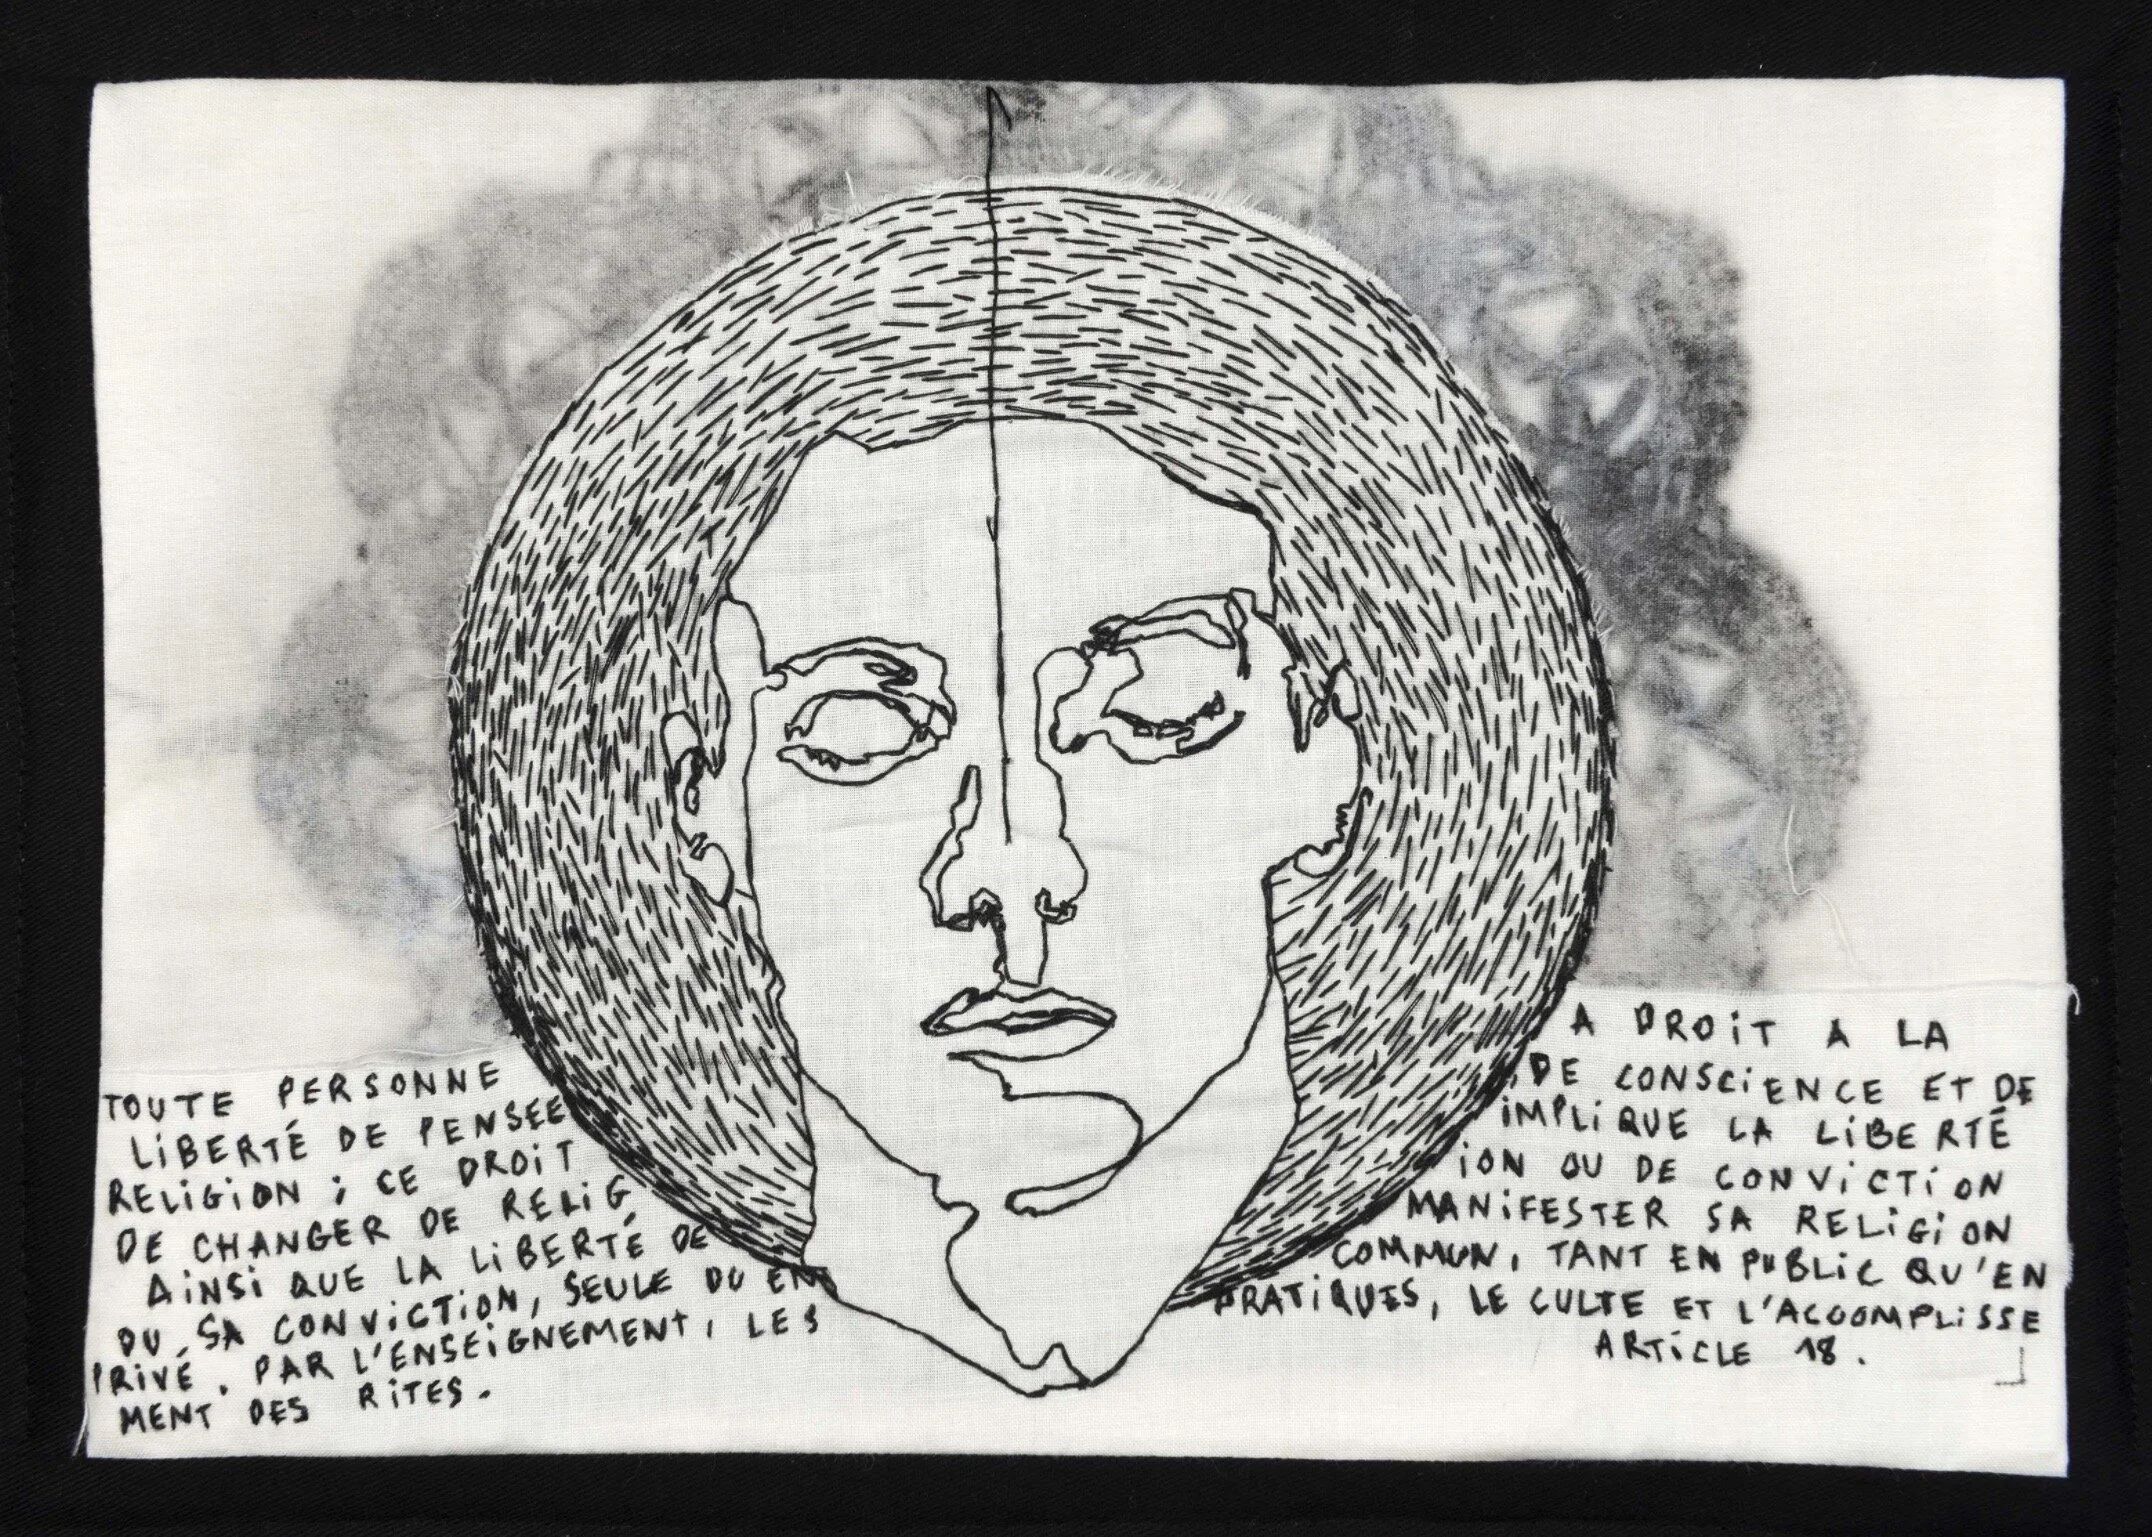 TOUTE PERSONNE A DROIT A LA
LIBERTÉ DE PENSEE, DE CONSCIENCE ET DE
RELIGION ; CE DROIT IMPLIQUE LA LIBERTÉ
DE CHANGER DE RELIG ION OU DE CONVICTION
AINSI QUE LA LIBERTÉ DE MANIFESTER SA RELIGION
OU SA CONVICTION, SEULE OU EN COMMUN, TANT EN PUBLIC QU'EN
PRIVÉ, PAR L'ENSEIGNEMENT, LES PRATIQUES, LE CULTE ET L'ACCOMPLISSE
MENT DES RITES. ARTICLE 18.